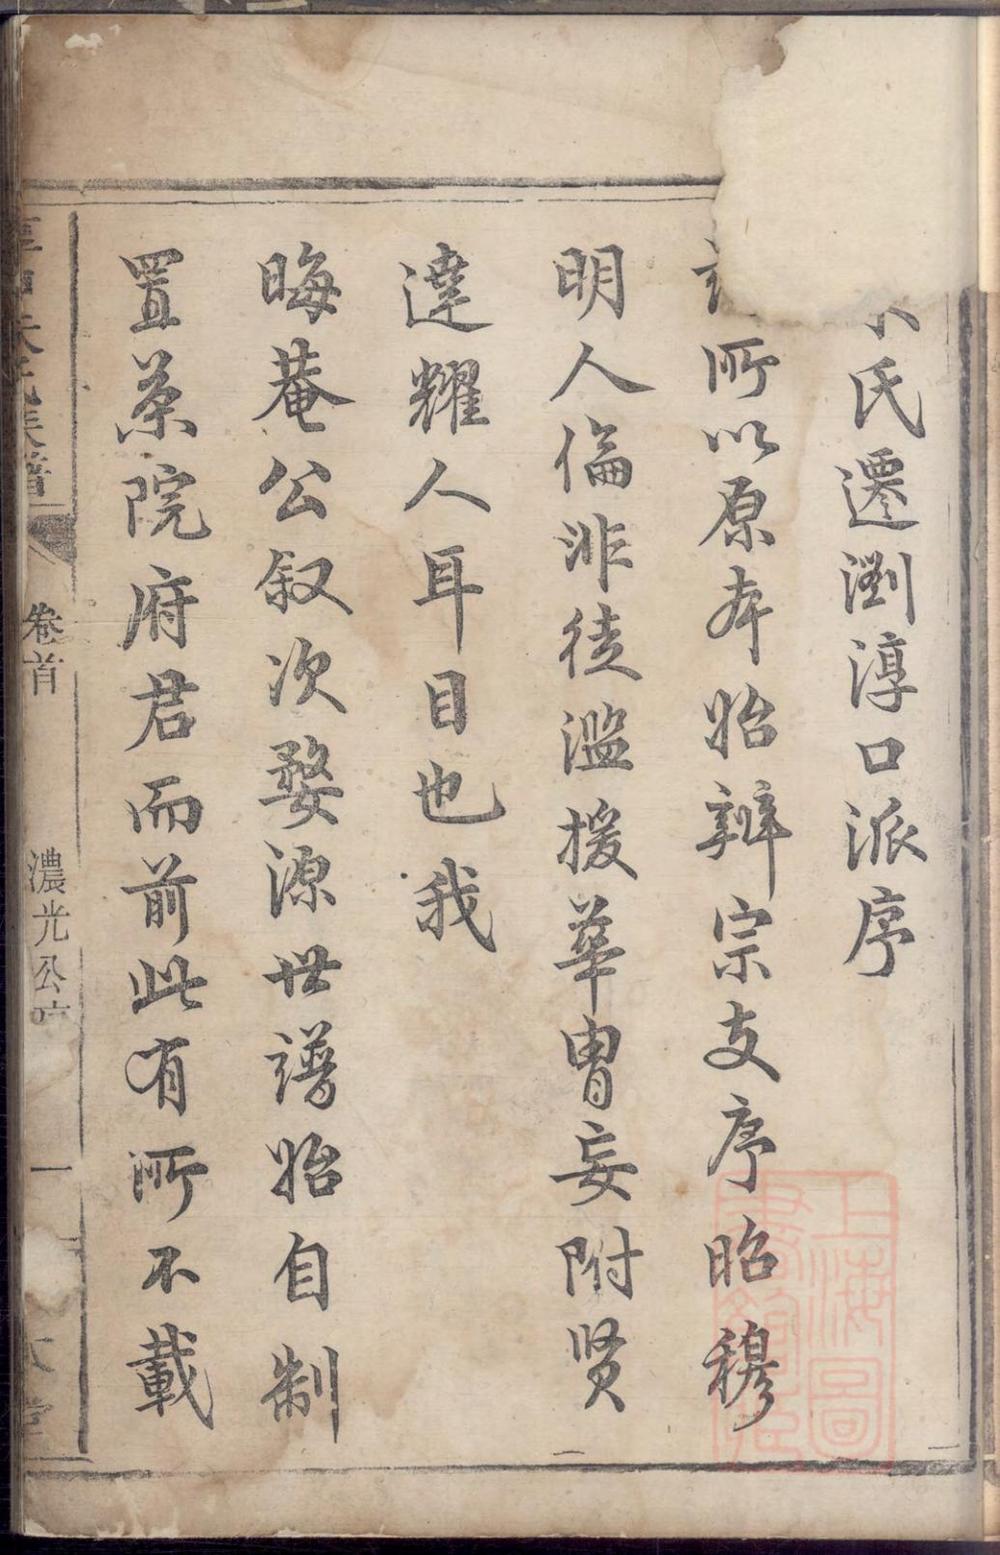 氏遷瀏淳口派序
所以原本始辨宗支序昭穆
明人倫非徒濫援華冑妄附贤
達耀人耳目也我
晦菴公叙次婺源世譜始自制
置茶院府君而前此有所不載
朱氏族譜
卷首
濃光公
一
堂
上海圖
書館藏